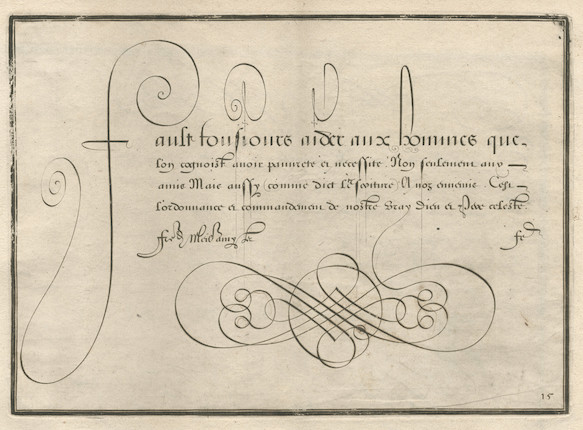 fault tousjours aider aux hommes que
lon cognoist avoir pauvrete et necessite. Non seulement aux
amis Mais aussy (comme dict l'escriture) A noz ennemis. Cest
l'ordonnance et commandement de nostre vray Dieu et Pere celeste.
15